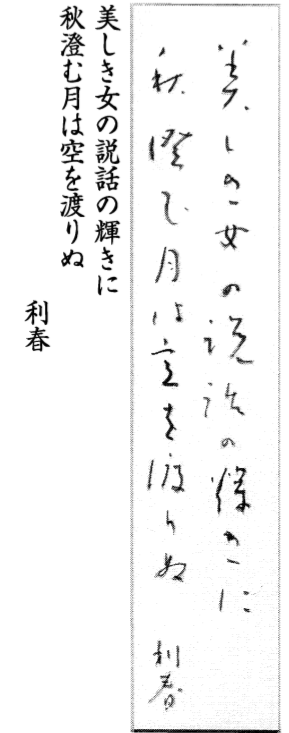 美しき女の説話の輝きに
秋澄む月は空を渡りぬ
利春
美しき女の説話の輝きに
秋澄む月は空を渡りぬ 利春